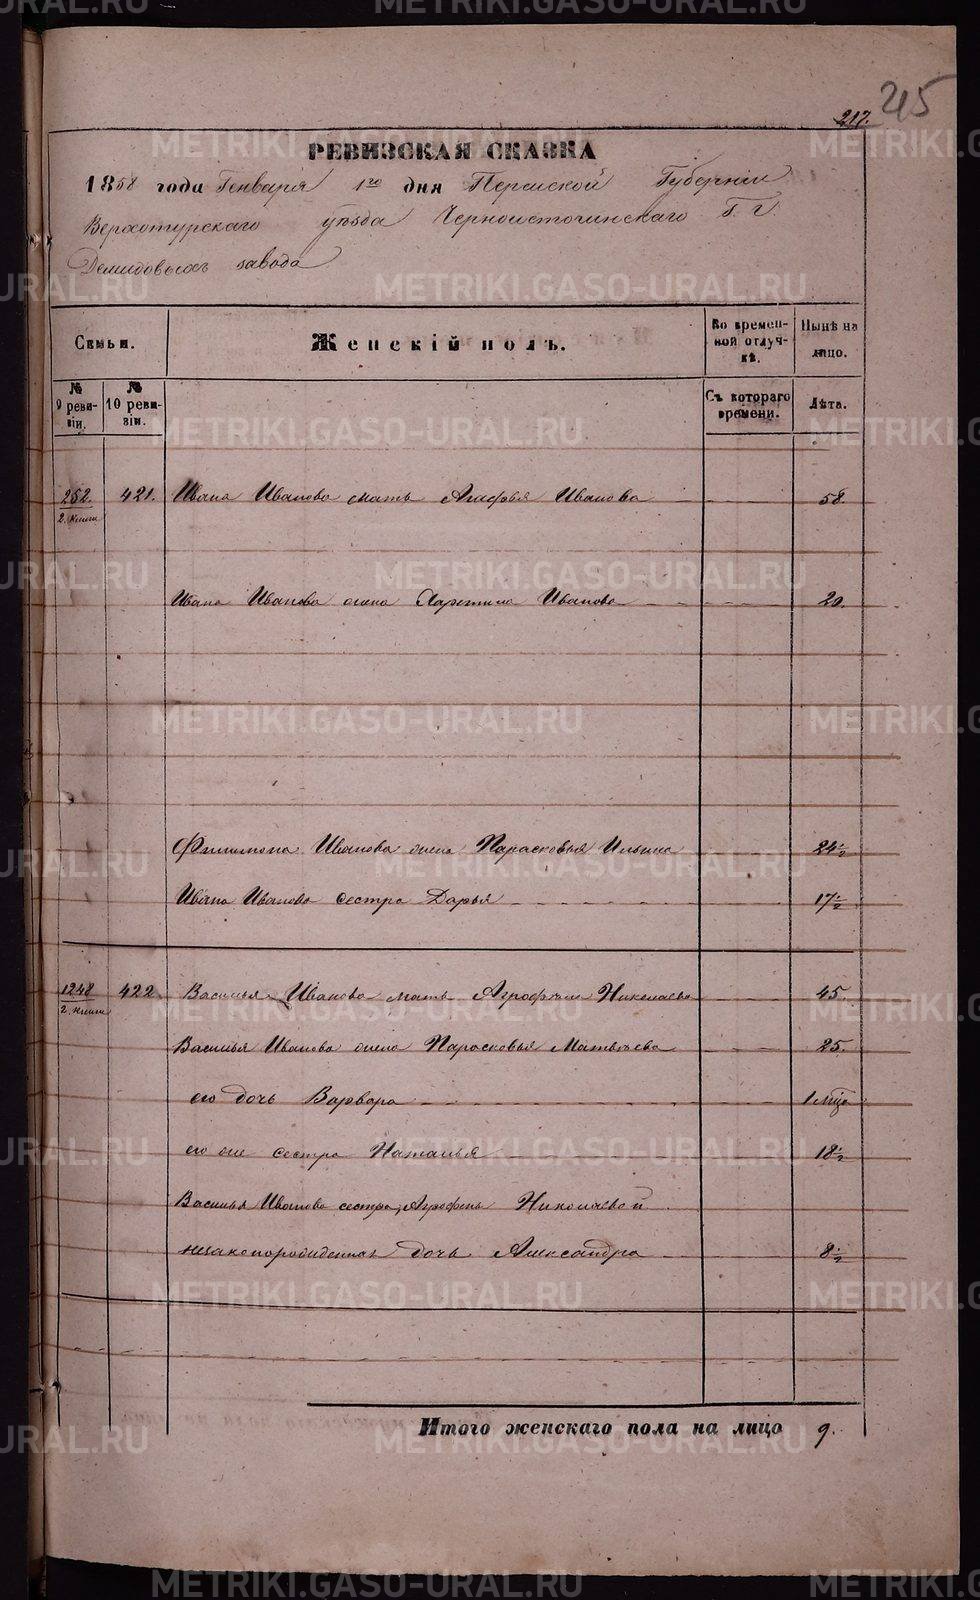 METRIKI.GASO-URAL.RU
217.
245
РЕВИЗСКАЯ СКАЗКА
1858 года Генваря 1го дня Пермской Губернии
Верхотурскаго уѣзда Черноисточинскаго Г. г.
Демидовыхъ завода
Семьи.
Женскій полъ.
Во времен-
ной отлуч-
кѣ.
Нынѣ на
лицо.
№
9 реви-
зіи.
№
10 реви-
зіи.
Съ котораго
времени.
Лѣта.
252. 421. Ивана Иванова мать Агафья Иванова 58.
2. книги
Ивана Иванова жена Харитина Иванова 20.
Филимона Иванова жена Парасковья Ильина 24½
Ивана Иванова сестра Дарья 17½
1248 422. Василья Иванова мать Агрофена Николаева 45.
2. книги
Василья Иванова жена Парасковья Матвѣева 25.
его дочь Варвара 1 мѣс
его же сестра Наталья 18½
Василья Иванова сестра, Агрофены Николаевой
незаконорожденная дочь Александра 8½
Итого женскаго пола на лицо 9.